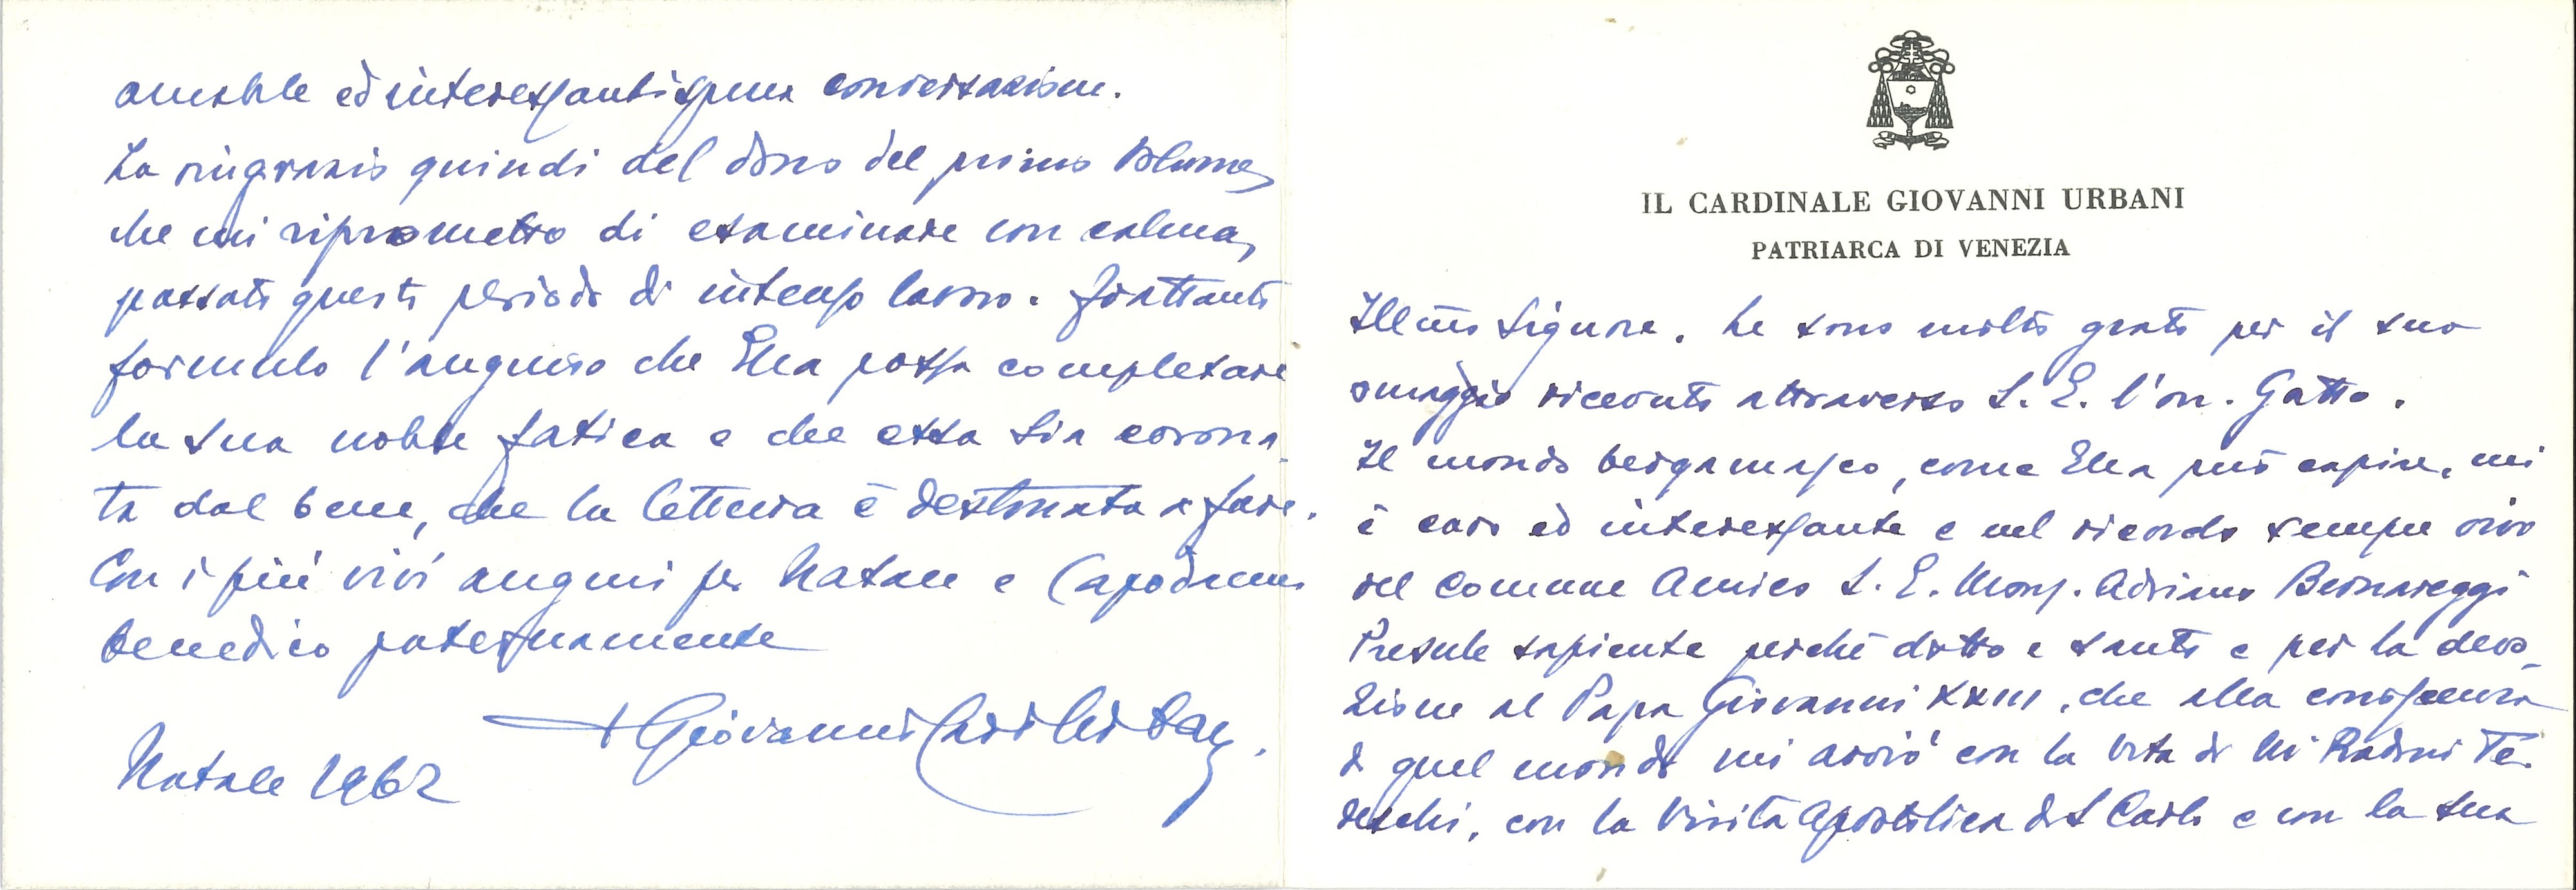 IL CARDINALE GIOVANNI URBANI
PATRIARCA DI VENEZIA
Ill.mo Signore. Le sono molto grato per il suo
omaggio ricevuto attraverso S. E. l'on. Gatto.
Il mondo bergamasco, come Ella può capire, mi
è caro ed interessante e nel ricordo sempre vivo
del Comune Amico S. E. Mons. Adriano Bernareggi
Presule sapiente perché dotto e santo e per la devo_
zione al Papa Giovanni XXIII, che alla conoscenza
di quel mondo mi avviò con la Vita di Radini Te_
deschi, con la Visita Apostolica di S Carlo e con la sua
amabile ed interessantissima conversazione.
La ringrazio quindi del dono del primo volume,
che mi riprometto di esaminare con calma,
passato questo periodo di intenso lavoro. Frattanto
formulo l'augurio che Ella possa completare
la sua nobile fatica e che essa sia corona_
ta dal bene, che la lettura è destinata a fare.
Con i più vivi auguri per Natale e Capodanno
benedico paternamente
+ Giovanni Card Urbani.
Natale 1962